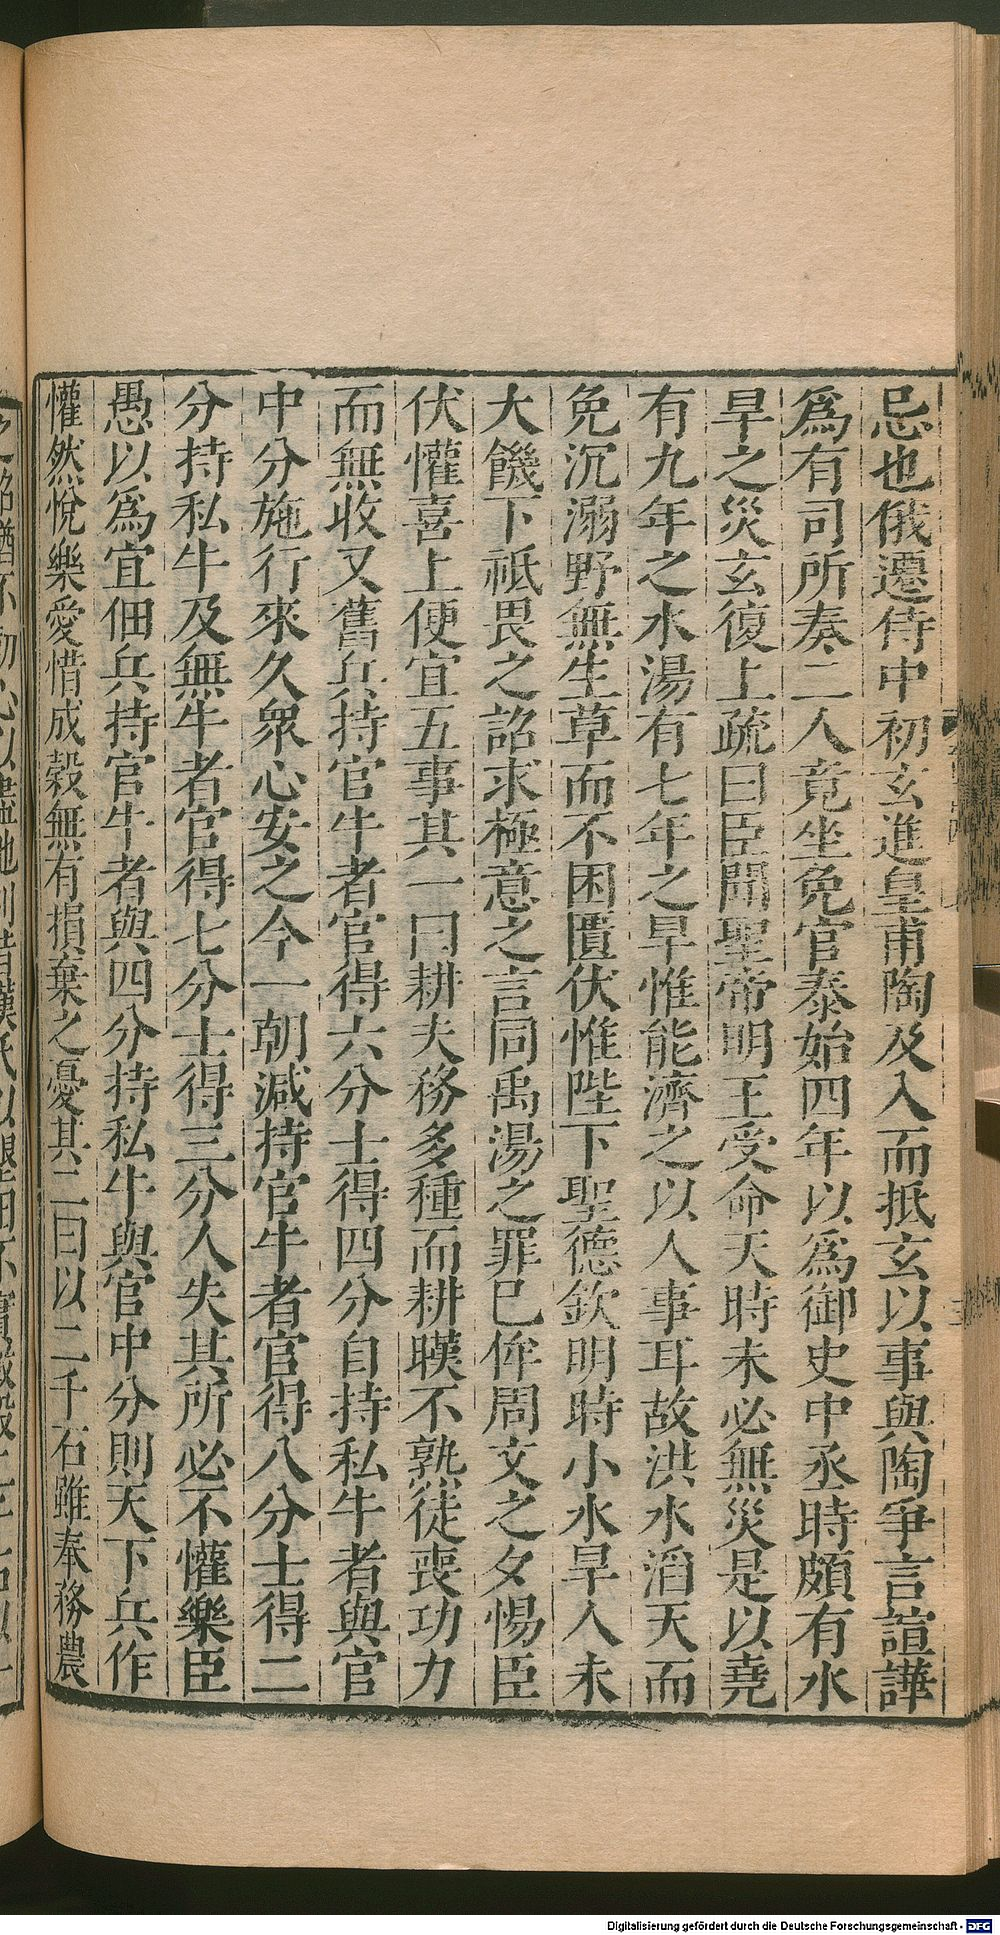 忌也俄遷侍中初玄進皇甫陶及入而抵玄以事與陶爭言諠譁
爲有司所奏二人竟坐免官泰始四年以爲御史中丞時頗有水
旱之災玄復上疏曰臣聞聖帝明王受命天時未必無災是以堯
有九年之水湯有七年之旱惟能濟之以人事耳故洪水滔天而
免沉溺野無生草而不困匱伏惟陛下聖德欽明時小水旱人未
大饑下祗畏之詔求極意之言同禹湯之罪已侔周文之夕惕臣
伏懽喜上便宜五事其一曰耕夫務多種而耕暵不熟徒喪功力
而無收又舊兵持官牛者官得六分士得四分自持私牛者與官
中分施行來久衆心安之今一朝減持官牛者官得八分士得二
分持私牛及無牛者官得七分士得三分人失其所必不懽樂臣
愚以爲宜佃兵持官牛者與四分持私牛與官中分則天下兵作
懽然悅樂愛惜成穀無有損棄之憂其二曰以二千石雖奉務農
Digitalisierung gefördert durch die Deutsche Forschungsgemeinschaft - DFG